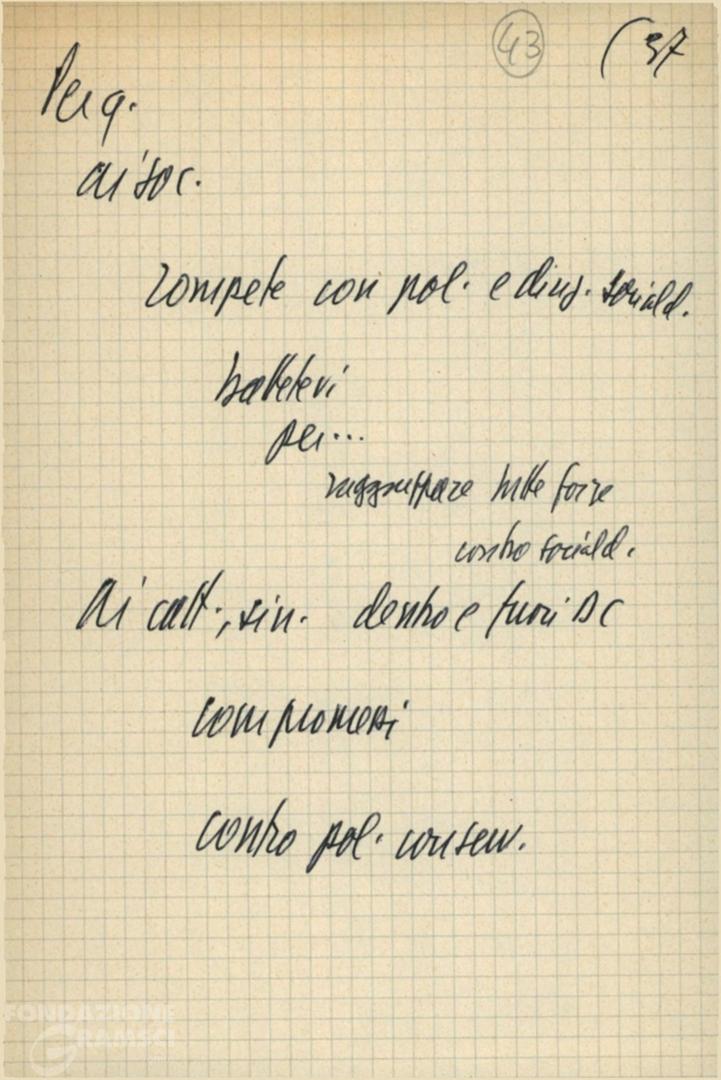 43 (37
Per q.
ai soc.
rompete con pol. e dirig. sociald.
battetevi
per...
raggruppare tutte forze
contro sociald.
Ai catt., sin. dentro e fuori DC
compromessi
contro pol. conserv.
FONDAZIONE
GRAMSCI